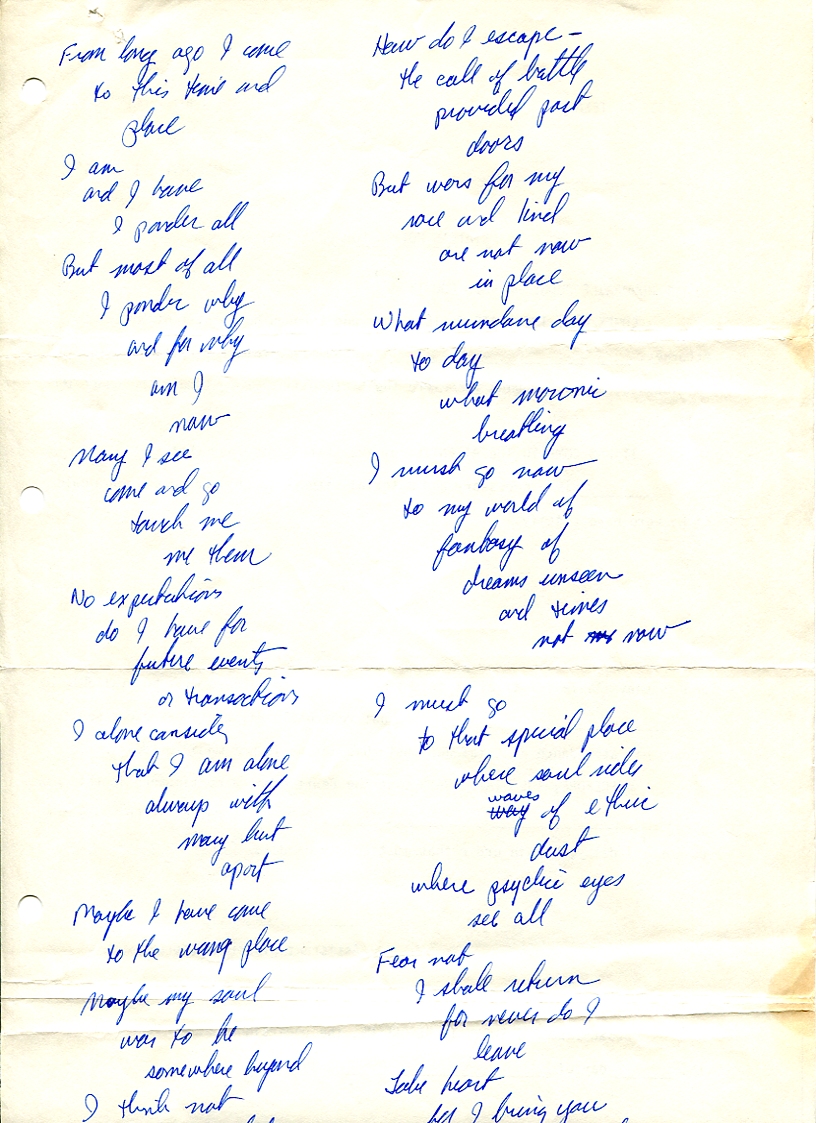 From long ago I come
to this time and
place
I am
and I have
I ponder all
But most of all
I ponder why
and for why
am I
now
Many I see
come and go
touch me
me them
No expectations
do I have for
future events
or transactions
I alone consider
that I am alone
always with
many but
apart
Maybe I have come
to the wrong place
Maybe my soul
was to be
somewhere beyond
I think not
How do I escape –
the call of battle
provided past
doors
But wars for my
race and kind
are not now
in place
What mundane day
to day
what moronic
breathing
I must go now
to my world of
fantasy of
dreams unseen
and times
not now
I must go
to that special place
where soul rides
waves
of ethric
dust
where psychic eyes
see all
Fear not
I shall return
for never do I
leave
Take heart
I bring you